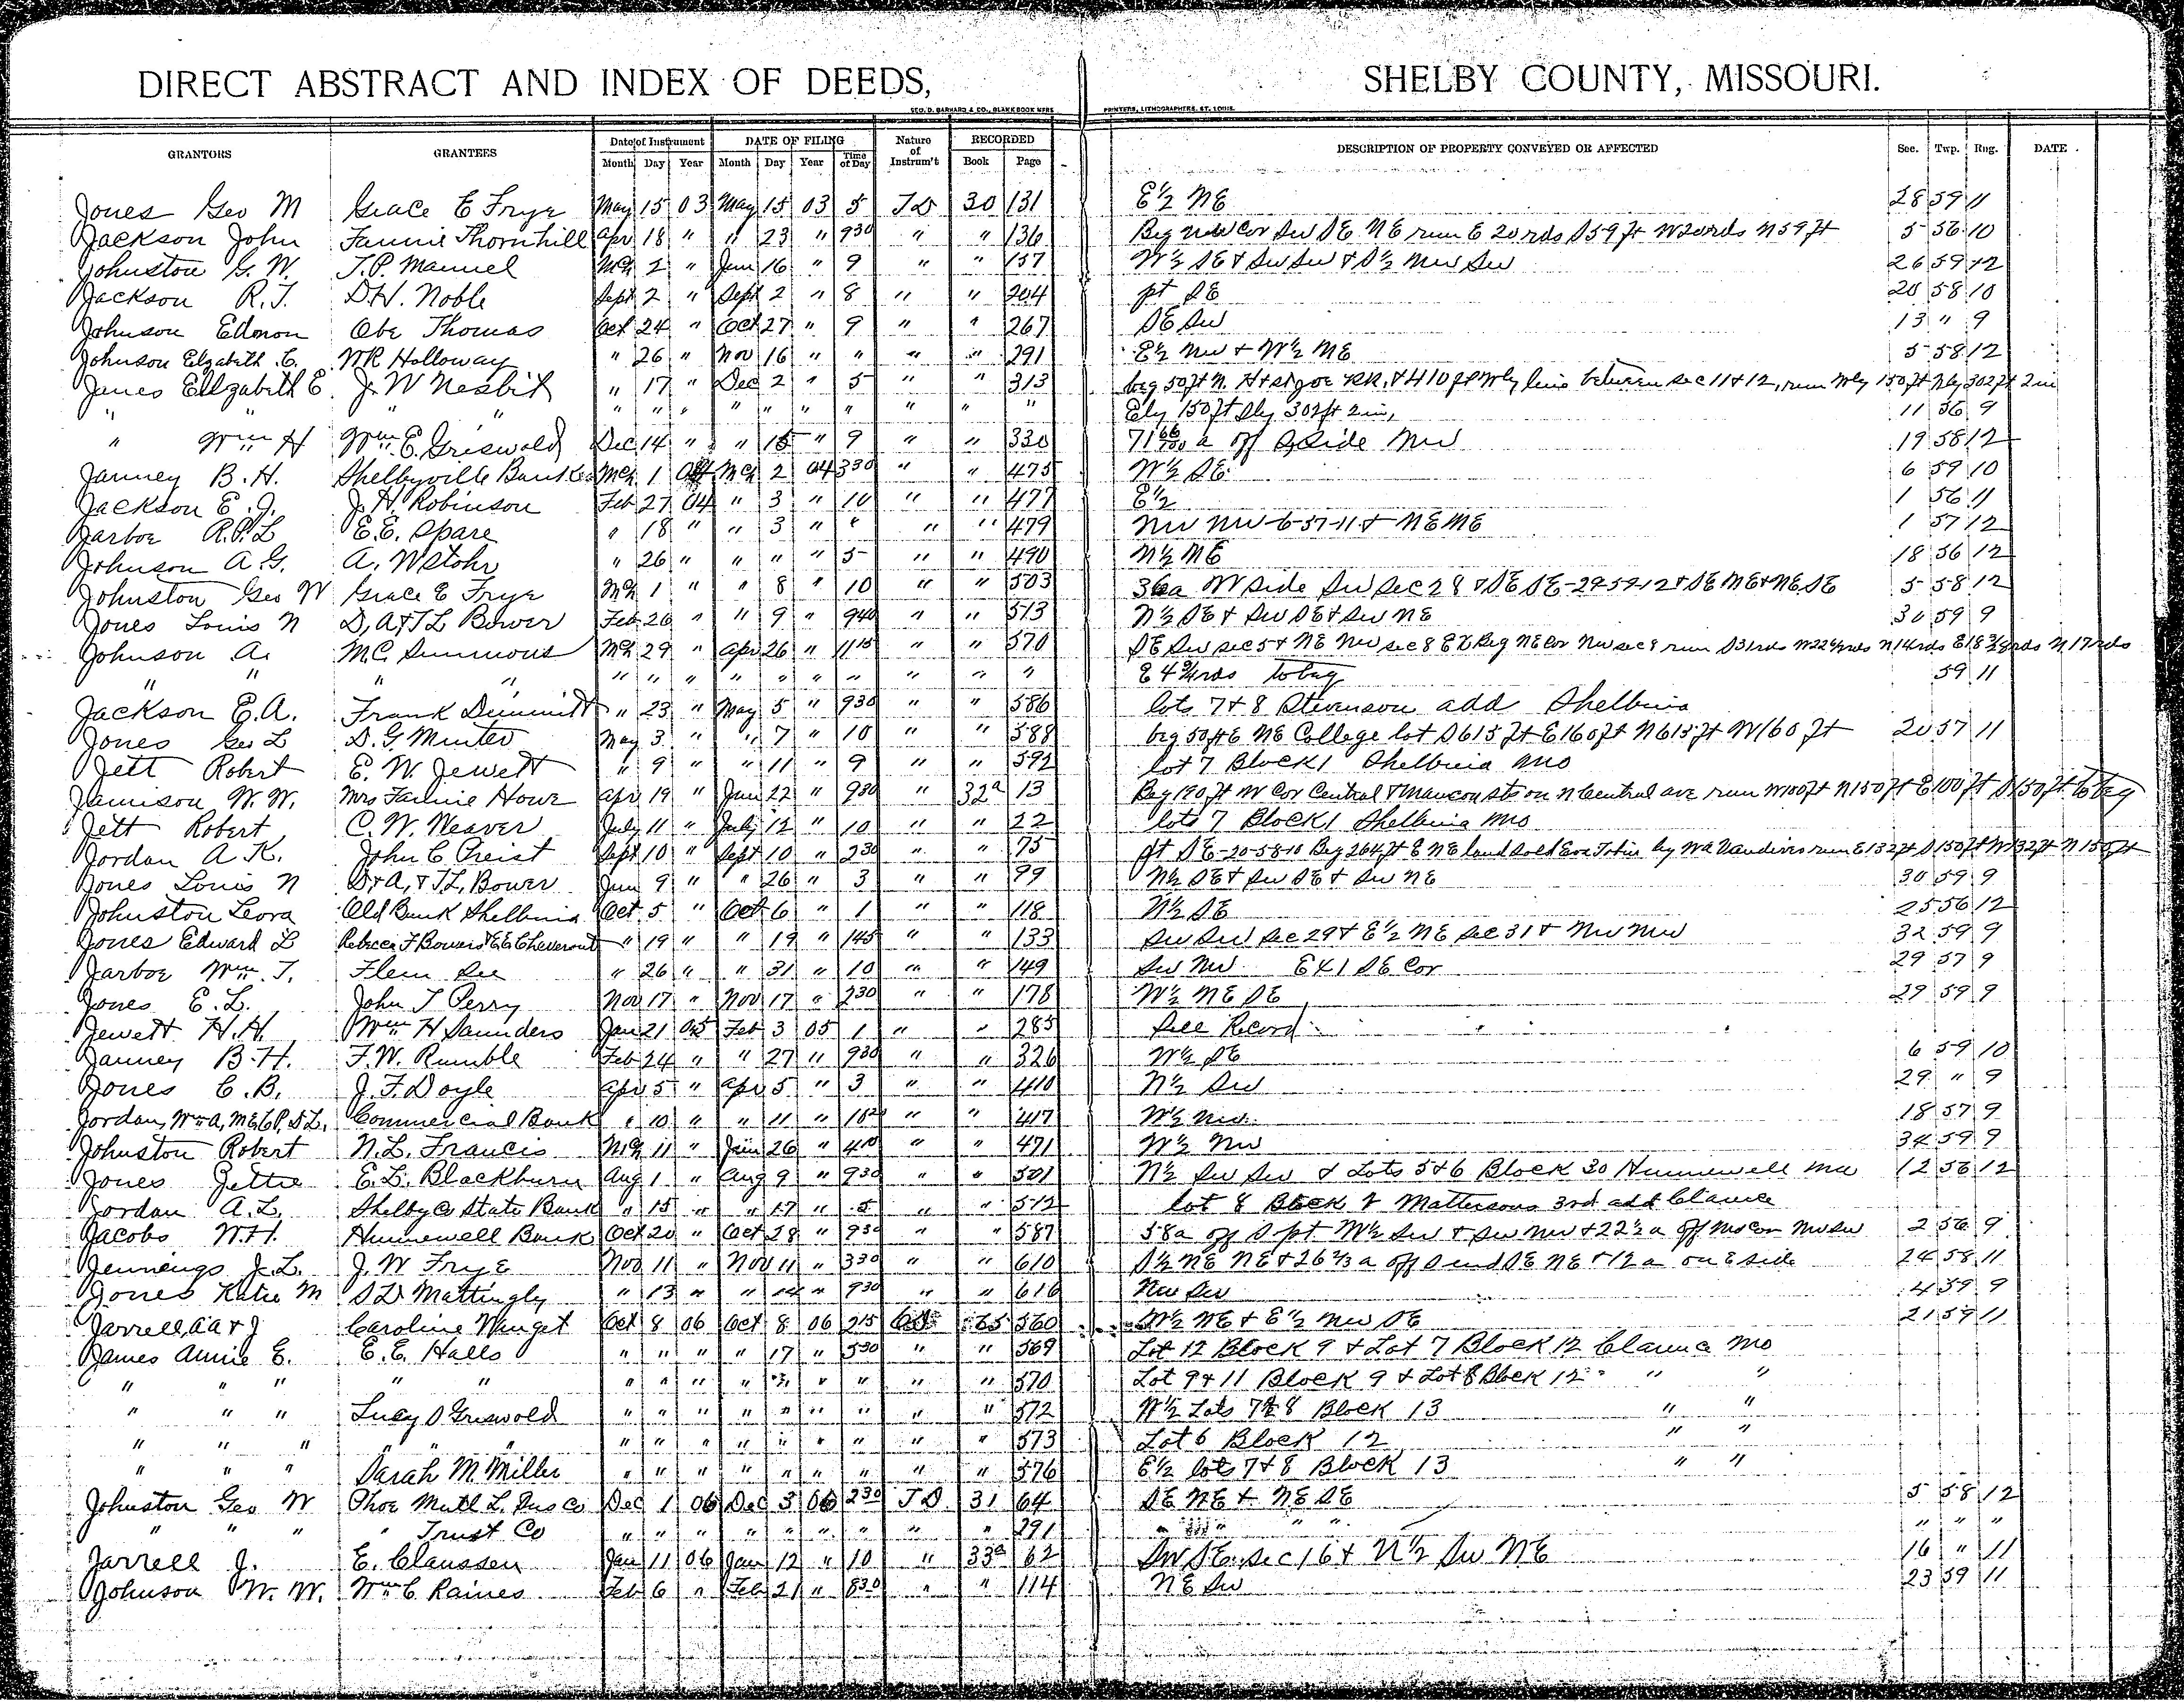 DIRECT ABSTRACT AND INDEX OF DEEDS, SHELBY COUNTY, MISSOURI.
GEO. D. BARNARD & CO., BLANK BOOK MFRS PRINTERS, LITHOGRAPHERS, ST. LOUIS.
GRANTORS GRANTEES Date of Instrument DATE OF FILING Nature of Instrum't RECORDED DESCRIPTION OF PROPERTY CONVEYED OR AFFECTED Sec. Twp. Rng. DATE
Month Day Year Month Day Year Time of Day Book Page
Jones Geo M Grace E Frye May 15 03 May 15 03 5 TD 30 131 E½ NE 28 59 11
Jackson John Fannie Thornhill Apr 18 " " 23 " 930 " " 136 Beg NW Cor SW SE NE run E 20 rds S 59 ft W 20 rds N 59 ft 5 56 10
Johnston G. W. T. P. Manuel Mch 2 " Jun 16 " 9 " " 157 W½ SE & SW SW & S½ NW SW 26 59 12
Jackson R. T. D. H. Noble Sept 2 " Sept 2 " 8 " " 204 pt SE 20 58 10
Johnson Edmon Obe Thomas Oct 24 " Oct 27 " 9 " " 267 SE SW 13 " 9
Johnson Elzabeth C. W R Holloway " 26 " Nov 16 " " " " 291 E½ NW & W½ NE 5 58 12
Janes Ellzabeth E J. W Nesbit " 17 " Dec 2 " 5 " " 313 beg 50 ft N. H & St Joe RR. & 410 ft Wly line between sec 11 & 12, run Wly 150 ft Nly 302 ft 2 in
" " " " " " " " " " " " " " Ely 150 ft Sly 302 ft 2 in, 11 56 9
" Wm H Wm E. Griswold Dec 14 " " 15 " 9 " " 330 71 66/100 a off S side NW 19 58 12
Janney B. H. Shelbyville Bank Mch 1 04 Mch 2 04 330 " " 475 W½ SE 6 59 10
Jackson E. J. J. H. Robinson Feb 27 04 " 3 " 10 " " 477 E½ 1 56 11
Jarboe R. P. L E. E. Spare " 18 " " 3 " " " " 479 NW NW 6-57-11 & NE NE 1 57 12
Johnson A. G. A. W Stohr " 26 " " " " 5 " " 490 N½ NE 18 56 12
Johnston Geo W Grace E Frye Mch 1 " " 8 " 10 " " 503 36a W side SW Sec 28 & SE SE-29-59-12 & SE NE & NE SE 5 58 12
Jones Louis N D, A & T L Bower Feb 26 " " 9 " 940 " " 513 N½ SE & SW SE & SW NE 30 59 9
Johnson A. M. C. Simmons Mch 29 " Apr 26 " 1115 " " 570 SE SW sec 5 & NE NW sec 8 EX Beg NE Cor NW sec 8 run S 31 rds W 22 rds N 14 rds E 18 rds N 17 rds
" " " " " " " " " " " " " " E 4 rds to beg 59 11
Jackson E. A. Frank Dimmitt " 23 " May 5 " 930 " " 586 lots 7 & 8 Stevenson add Shelbina
Jones Geo L D. G. Minter May 3 " " 7 " 10 " " 588 beg 50 ft E NE College lot S 615 ft E 160 ft N 615 ft W 160 ft 20 57 11
Jett Robert E. W. Jewett " 9 " " 11 " 9 " " 592 lot 7 Block 1 Shelbina Mo
Jamison W. W. Mrs Fannie Howe Apr 19 " Jun 22 " 930 " 32a 13 Beg 190 ft W Cor Central & Macon sts on N Central ave run W 100 ft N 150 ft E 100 ft S 150 ft to beg
Jett Robert C. W. Weaver July 11 " July 12 " 10 " " 22 lots 7 Block 1 Shelbina Mo
Jordan A. K. John C Preist Sept 10 " Sept 10 " 230 " " 75 pt SE-20-58-10 Beg 264 ft E NE land sold by run E 132 ft S 150 ft W 132 ft N 150 ft
Jones Louis N D & A, & T. L. Bower Jun 9 " " 26 " 3 " " 99 N½ SE & SW SE & SW NE 30 59 9
Johnston Leora Old Bank Shelbina Oct 5 " Oct 6 " 1 " " 118 N½ SE 25 56 12
Jones Edward L Rebecca F Bowers & E E Cheveront " 19 " " 19 " 145 " " 133 SW SW sec 29 & E½ NE sec 31 & NW NW 32 59 9
Jarboe Wm T. Flem See " 26 " " 31 " 10 " " 149 SW NW EX 1 SE Cor 29 57 9
Jones E. L. John T Perry Nov 17 " Nov 17 " 230 " " 178 W½ NE SE 29 59 9
Jewett H. H. Wm H Saunders Jan 21 05 Feb 3 05 1 " " 285 See Record
Janney B. H. F. W. Rumble Feb 24 " " 27 " 930 " " 326 W½ SE 6 59 10
Jones C. B. J. F. Doyle Apr 5 " Apr 5 " 3 " " 410 N½ SW 29 " 9
Jordan, Wm A, M E, C P, S L, Commercial Bank " 10 " " 11 " " " 417 W½ NW 18 57 9
Johnston Robert N. L. Francis Mch 11 " Jun 26 " 410 " " 471 W½ NW 34 59 9
Jones Gettie E. L. Blackburn Aug 1 " Aug 9 " 930 " " 501 N½ SW SW & Lots 5 & 6 Block 30 Hunnewell Mo 12 56 12
Jordan A. L. Shelby Co State Bank " 15 " " 17 " 5 " " 572 lot 8 Block 2 Mattersons 3rd add Clarence
Jacobs W. H. Hunnewell Bank Oct 20 " Oct 28 " 930 " " 587 58a off S pt W½ SW & SW NW & 22½ a off Cor NW SW 2 56 9
Jennings J. L. J. W Frye Nov 11 " Nov 11 " 330 " " 610 S½ NE NE & 26⅔ a off S end SE NE & 12 a on E side 24 58 11
Jones Katie M S D Mattingly " 13 " " 14 " 930 " " 616 NW SW 4 59 9
Jarrell, A A & J Caroline Winget Oct 8 06 Oct 8 06 215 65 560 W½ NE & E½ NW SE 21 59 11
James Annie E. E. E. Halls " " " " 17 " 530 " " 569 Lot 12 Block 9 & Lot 7 Block 12 Clarence Mo
" " " " " " " " " " " " " " 570 Lot 9 & 11 Block 9 & Lot 8 Block 12 " "
" " " Lucy S Griswold " " " " " " " " " 572 W½ Lots 7 & 8 Block 13 " "
" " " " " " " " " " " " " " " 573 Lot 6 Block 12 " "
" " " Sarah M. Miller " " " " " " " " " 576 E½ lots 7 & 8 Block 13 " "
Johnston Geo W Phoe Mutl L. Ins Co Dec 1 06 Dec 3 06 230 TD 31 64 SE NE & NE SE 5 58 12
" " " " Trust Co " " " " " " " " " 291 " " " " " " "
Jarrell J. E. Claussen Jan 11 06 Jan 12 " 10 " 33a 62 SW SE sec 16 & N½ SW NE 16 " 11
Johnson W. W. Wm C Raines Feb 6 " Feb 21 " 830 " " 114 NE SW 23 59 11